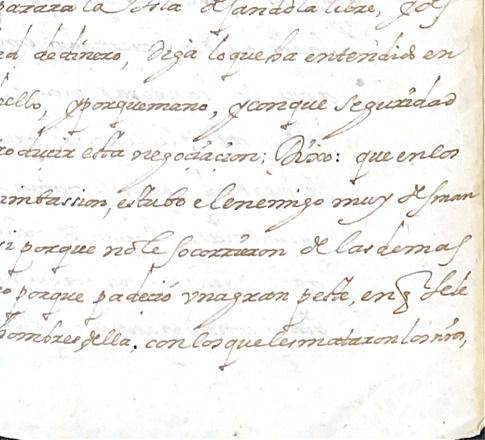 pararala Isla desanadla libre, y des
ad de dinero, diga loque ha entendido en
ello, y porquemano, y conque seguridad
roducir esta negociacion; Dixo: que en los
imbassion, estubo el enemigo muy desman
si porque no le socorrieron de las demas
o porque padeció una gran peste, en q̃ sele
hombres della, con los que les mataron los nr̃os,